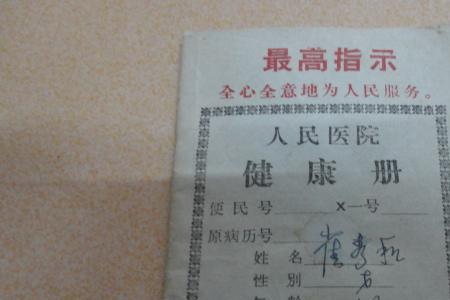 最高指示
全心全意地为人民服务。
人民医院
健康册
便民号 X一号
原病历号
姓名 崔
性别 女
年龄